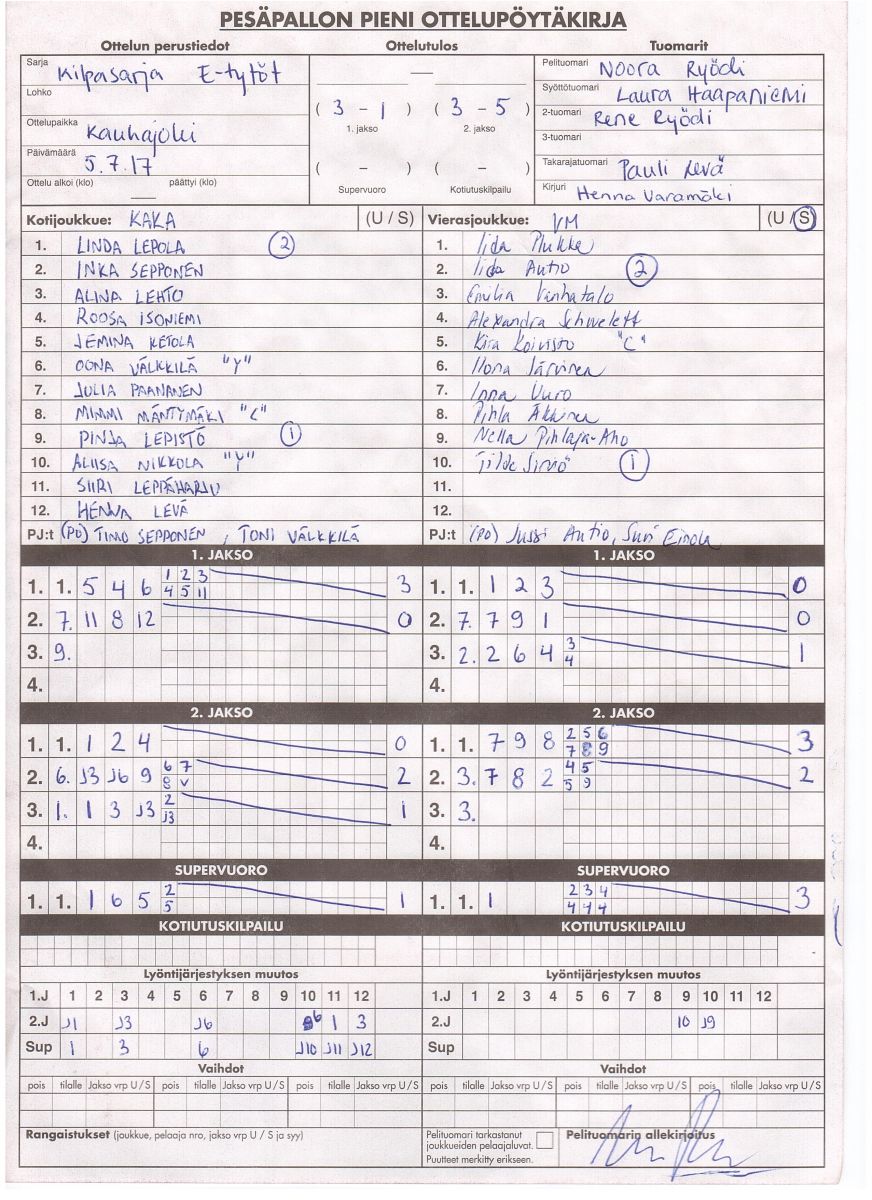 PESÄPALLON PIENI OTTELUPÖYTÄKIRJA
Ottelun perustiedot Ottelutulos Tuomarit
Sarja Kilpasarja E-tytöt
Lohko
Ottelupaikka Kauhajoki
Päivämäärä 5.7.17
Ottelu alkoi (klo) — päättyi (klo)
—
( 3 - 1 ) ( 3 - 5 )
1. jakso 2. jakso
( - ) ( - )
Supervuoro Kotiutuskilpailu
Pelituomari Noora Ryödi
Syöttötuomari Laura Haapaniemi
2-tuomari Rene Ryödi
3-tuomari
Takarajatuomari Pauli Levä
Kirjuri Henna Varamäki
Kotijoukkue: KAKA (U / S) Vierasjoukkue: VM (U / S)
1. LINDA LEPOLA 2
2. INKA SEPPONEN
3. ALINA LEHTO
4. ROOSA ISONIEMI
5. JEMINA KETOLA
6. OONA VÄLKKILÄ "Y"
7. JULIA PAANANEN
8. MIMMI MÄNTYMÄKI "C"
9. PINJA LEPISTÖ 1
10. ALIISA NIKKOLA "Y"
11. SIIRI LEPPÄHARJU
12. HENNA LEVÄ
PJ:t (PO) TIMO SEPPONEN, TONI VÄLKKILÄ
1. Iida
2. Iida Autio 2
3. Emilia Vanhatalo
4. Alexandra
5. Kira Koivisto "C"
6. Ilona Järvinen
7. Inna Vuro
8. Pihla
9. Nella Pihlaja-Aho
10. Tilde 1
11.
12.
PJ:t (PO) Jussi Autio, Suvi Einola
1. JAKSO 1. JAKSO
1. 1. 5 4 6 1 2 3 3
4 5 11
2. 7. 11 8 12 0
3. 9.
4.
1. 1. 1 2 3 0
2. 7. 7 9 1 0
3. 2. 2 6 4 3 1
4
4.
2. JAKSO 2. JAKSO
1. 1. 1 2 4 0
2. 6. J3 J6 9 6 7 2
8 v
3. 1. 1 3 J3 2 1
J3
4.
1. 1. 7 9 8 2 5 6 3
7 8 9
2. 3. 7 8 2 4 5 2
5 9
3. 3.
4.
SUPERVUORO SUPERVUORO
1. 1. 1 6 5 2 1
5
1. 1. 1 2 3 4 3
4 4 4
KOTIUTUSKILPAILU KOTIUTUSKILPAILU
Lyöntijärjestyksen muutos Lyöntijärjestyksen muutos
1.J 1 2 3 4 5 6 7 8 9 10 11 12 1.J 1 2 3 4 5 6 7 8 9 10 11 12
2.J J1 J3 J6 6 1 3 2.J 10 J9
Sup 1 3 6 J10 J11 J12 Sup
Vaihdot Vaihdot
pois tilalle Jakso vrp U / S pois tilalle Jakso vrp U / S pois tilalle Jakso vrp U / S pois tilalle Jakso vrp U / S pois tilalle Jakso vrp U / S
Rangaistukset (joukkue, pelaaja nro, jakso vrp U / S ja syy)
Pelituomari tarkastanut
joukkueiden pelaajaluvat.
Puutteet merkitty erikseen.
Pelituomarin allekirjoitus